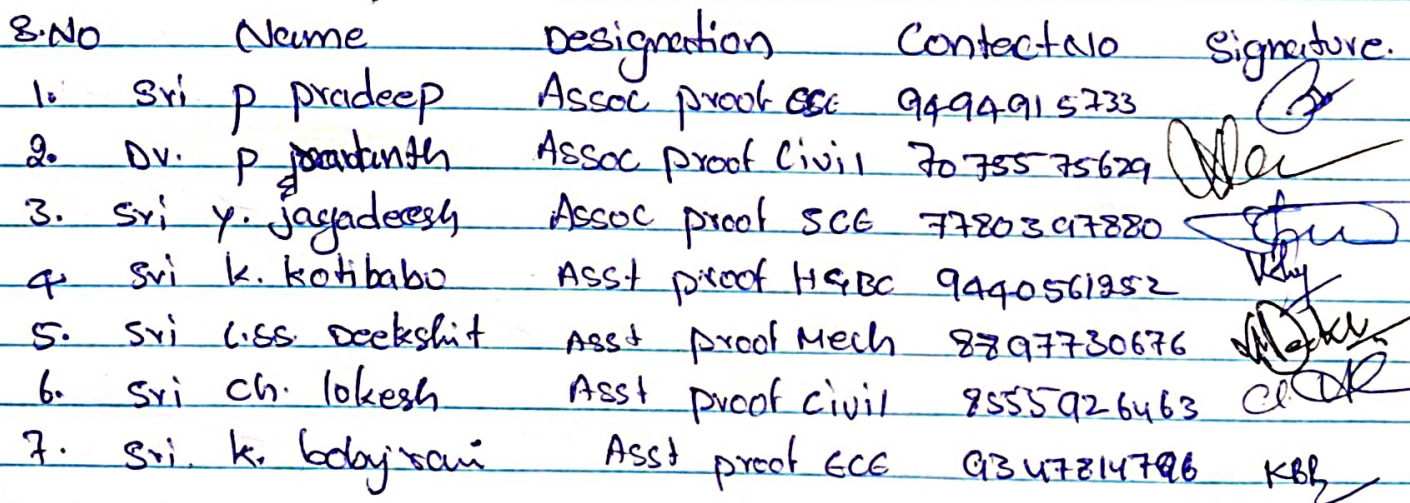 S.No Name Designation Contect No Signature.
1. Sri p pradeep Assoc proof ECE 9494915733
2. Dr. p Assoc proof Civil 7075575629
3. Sri y. jagadeesh Assoc proof SCE 7780397880
4 Sri k. kotibabo Asst proof H&BC 9440561252
5. Sri L.SS. Deekshit Asst proof Mech 8897730676
6. Sri ch. lokesh Asst proof civil 8555926463
7. Sri. k. bobyrani Asst proof ECE 9347814796 KBR